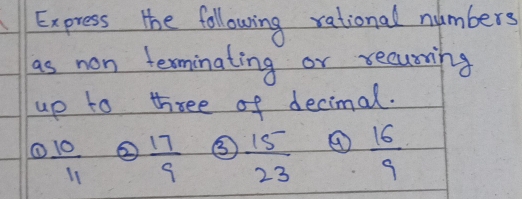 Express the following rational numbers
as non terminating or recurring
up to three of decimal.
① 10/11 ② 17/9 ③ 15/23 ④ 16/9